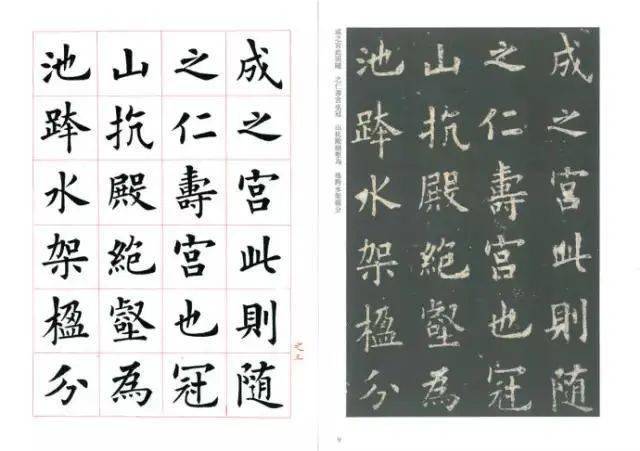 成之宮此則随
之仁壽宮也冠
山抗殿絶壑為
池跨水架楹分
成之宮此則隨 之仁壽宮也冠 山抗殿絕壑為 池跨水架楹分
成之宮此則随
之仁壽宮也冠
山抗殿絶壑為
池跨水架楹分
9